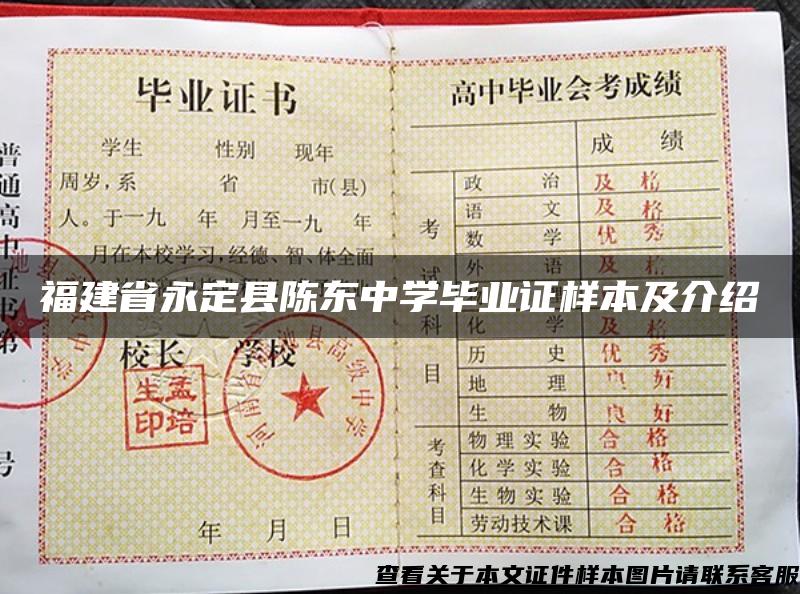 毕业证书
学生 性别 现年
周岁,系 省 市(县)
人。于一九 年 月至一九 年
月在本校学习,经德、智、体全面
校长 学校
孟培生印
年 月 日
普通高中证书第
号
高中毕业会考成绩
成 绩
考试科目
政 治 及 格
语 文 及 格
数 学 优 秀
外 语 及 格
化 学 及 格
历 史 优 秀
地 理 良 好
生 物 良 好
考查科目
物理实验 合 格
化学实验 合 格
生物实验 合 格
劳动技术课 合 格
福建省永定县陈东中学毕业证样本及介绍
查看关于本文证件样本图片请联系客服